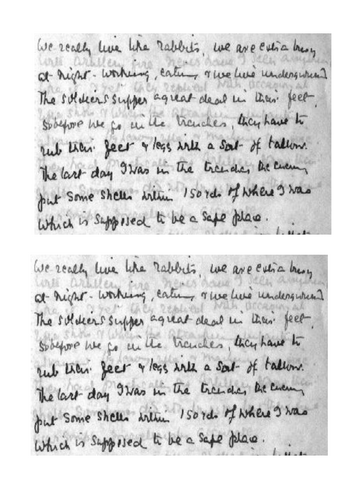 We really live like rabbits, we are extra busy
at night - working, eating & we live underground
The soldiers supper a great deal in their feet,
So before we go in the trenches, they have to
rub their feet & legs with a sort of tallow.
The last day I was in the trenches the enemy
put some shells within 150 yds of where I was
which is supposed to be a safe place.
We really live like rabbits, we are extra busy
at night - working, eating & we live underground
The soldiers supper a great deal in their feet,
So before we go in the trenches, they have to
rub their feet & legs with a sort of tallow.
The last day I was in the trenches the enemy
put some shells within 150 yds of where I was
which is supposed to be a safe place.